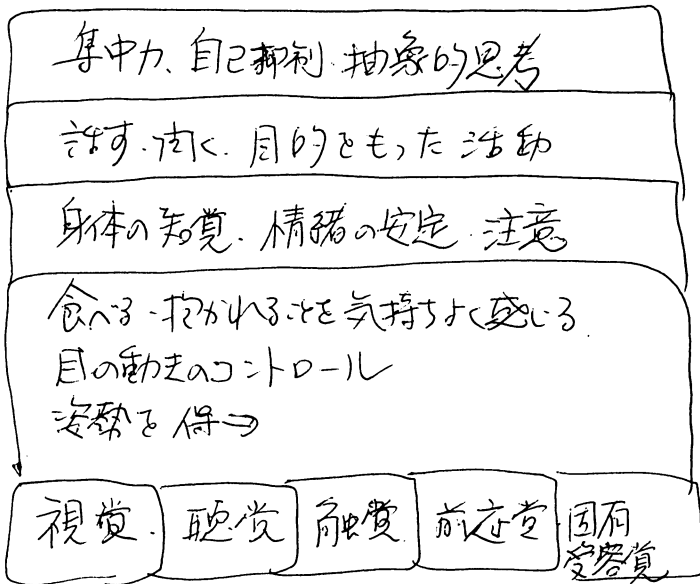 集中力、自己抑制・抽象的思考
話す・聞く・目的をもった活動
身体の知覚・情緒の安定・注意
食べる・抱かれることを気持ちよく感じる
目の動きのコントロール
姿勢を保つ
視覚
聴覚
触覚
前庭覚
固有
受容覚